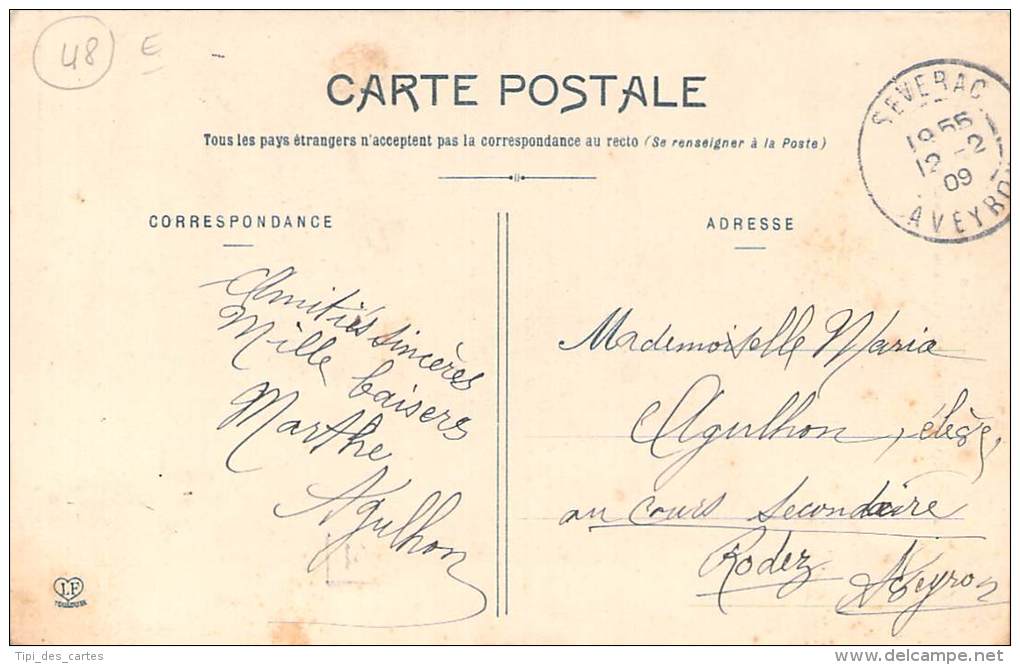 48 E
CARTE POSTALE
Tous les pays étrangers n'acceptent pas la correspondance au recto (Se renseigner à la Poste)
SEVERAC
12 -2
09
AVEYRON
CORRESPONDANCE
Amitiés sincères
Mille baisers
Marthe
Agulhon
ADRESSE
Mademoiselle Maria
Agulhon, élève
au cours secondaire
Rodez Aveyron
LF
TOULOUSE
Tipi_des_cartes
delcampe.net